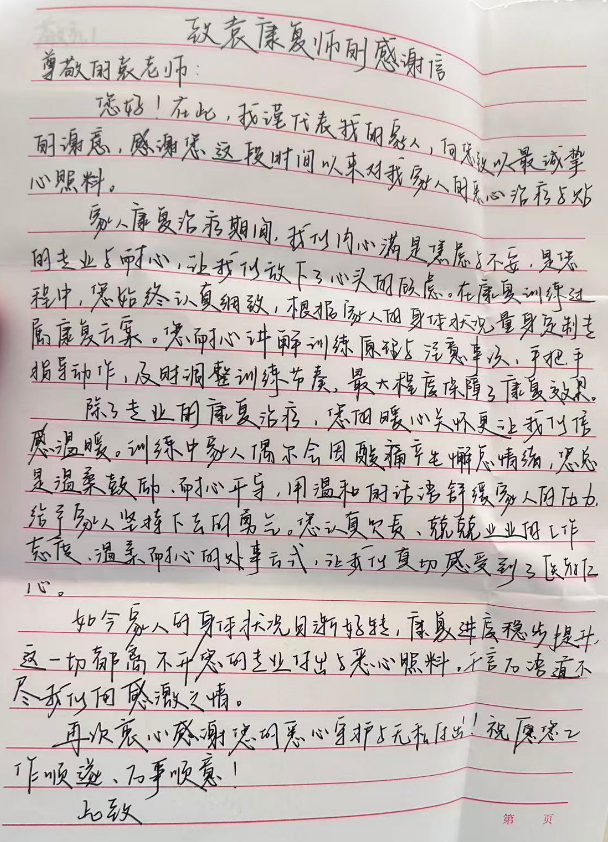 致袁康复师的感谢信
尊敬的袁老师：
您好！在此，我谨代表我的家人，向您致以最诚挚
的谢意，感谢您这段时间以来对我家人的悉心治疗与贴
心照料。
家人康复治疗期间，我们内心满是焦虑与不安，是您
的专业与耐心，让我们放下了心头的顾虑。在康复训练过
程中，您始终认真细致，根据家人的身体状况量身定制专
属康复方案。您耐心讲解训练原理与注意事项，手把手
指导动作，及时调整训练节奏，最大程度保障了康复效果。
除了专业的康复治疗，您的暖心关怀更让我们倍
感温暖。训练中家人偶尔会因酸痛产生懈怠情绪，您总
是温柔鼓励、耐心开导，用温和的话语舒缓家人的压力，
给予家人坚持下去的勇气。您认真负责、兢兢业业的工作
态度、温柔耐心的处事方式，让我们真切感受到了医者仁
心。
如今家人的身体状况日渐好转，康复进度稳步提升，
这一切都离不开您的专业付出与悉心照料。千言万语道不
尽我们的感激之情。
再次衷心感谢您的悉心守护与无私付出！祝愿您工
作顺遂、万事顺意！
此致
第 页